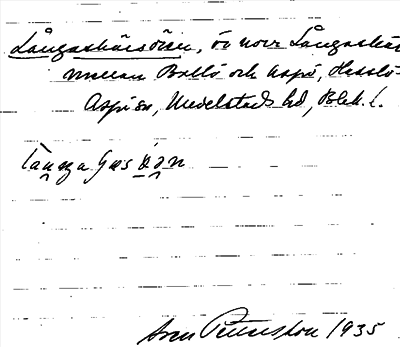 Långaskärsören, ö i norr Långaskär
mellan Bollö och Aspö, Hasslö-
Aspö sn, Medelstads hd, Blek. l.
Sven Pettersson 1935